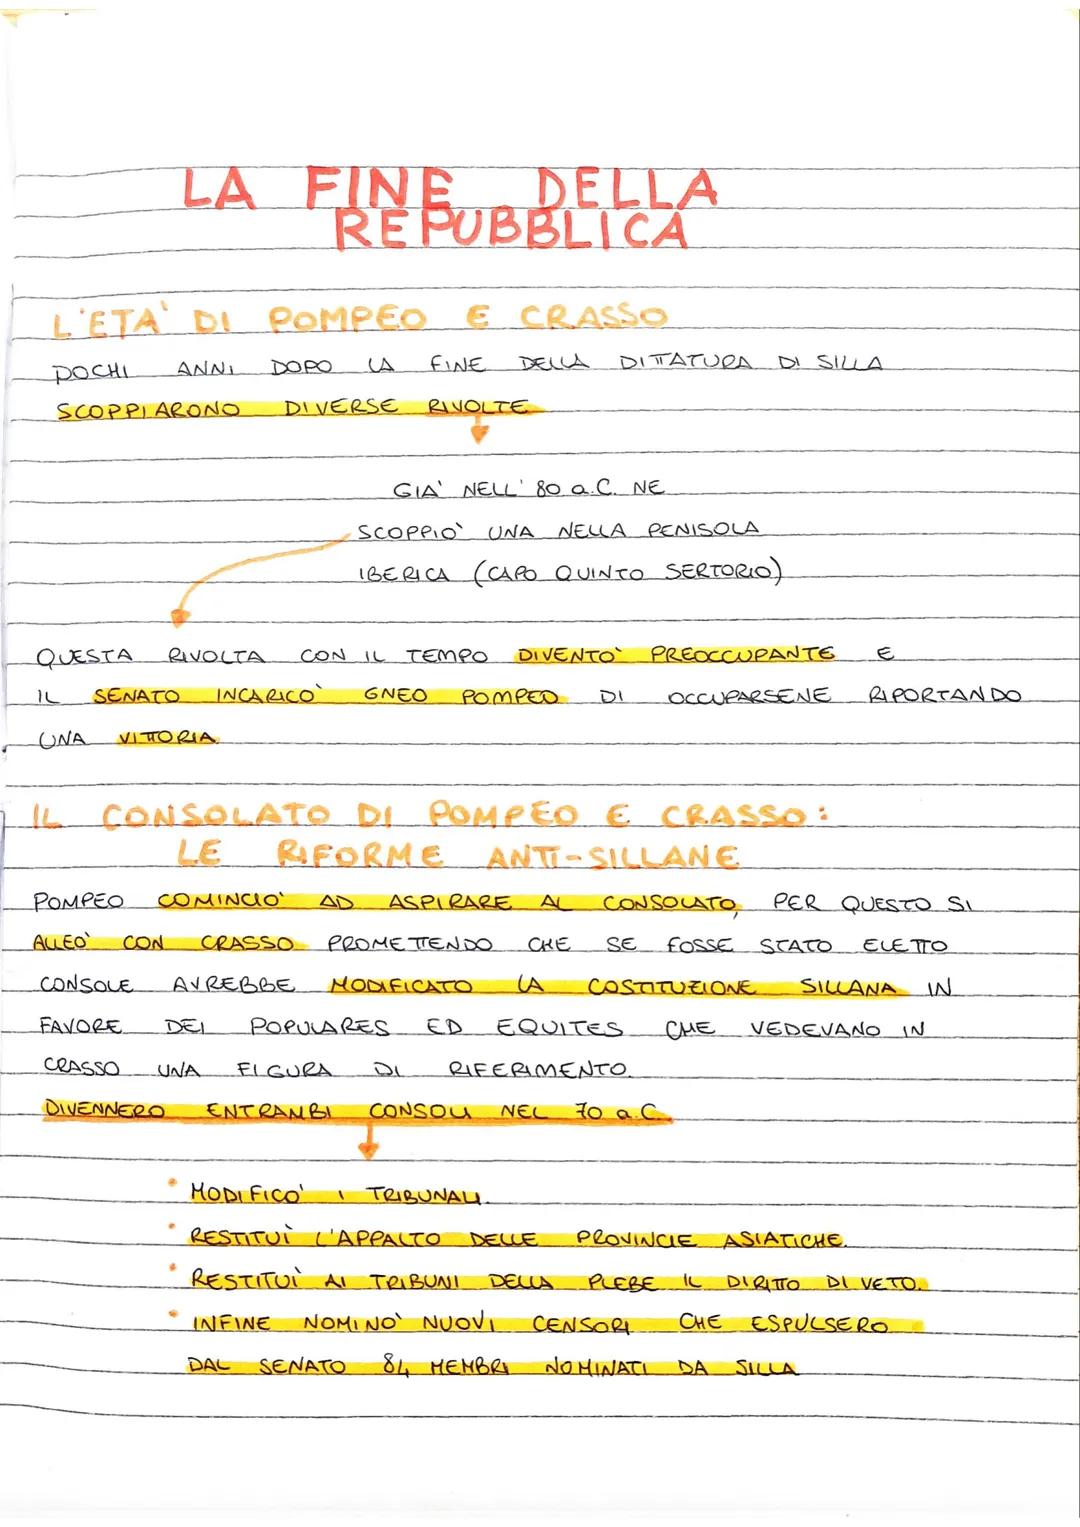 LA FINE DELLA
REPUBBLICA
L'ETA' DI POMPEO E CRASSO
POCHI ANNI DOPO LA FINE DELLA DITTATURA DI SILLA
SCOPPIARONO DIVERSE RIVOLTE
GIA' NELL' 80 a.C. NE
SCOPPIO' UNA NELLA PENISOLA
IBERICA (CAPO QUINTO SERTORIO)
QUESTA RIVOLTA CON IL TEMPO DIVENTO' PREOCCUPANTE E
IL SENATO INCARICO' GNEO POMPEO DI OCCUPARSENE RIPORTANDO
UNA VITTORIA.
IL CONSOLATO DI POMPEO E CRASSO:
LE RIFORME ANTI-SILLANE
POMPEO COMINCIO' AD ASPIRARE AL CONSOLATO, PER QUESTO SI
ALLEO' CON CRASSO PROMETTENDO CHE SE FOSSE STATO ELETTO
CONSOLE AVREBBE MODIFICATO LA COSTITUZIONE SILLANA IN
FAVORE DEI POPULARES ED EQUITES CHE VEDEVANO IN
CRASSO UNA FIGURA DI RIFERIMENTO.
DIVENNERO ENTRAMBI CONSOLI NEL 70 a.C.
• MODIFICO' I TRIBUNALI.
• RESTITUÌ L'APPALTO DELLE PROVINCIE ASIATICHE.
• RESTITUÌ AI TRIBUNI DELLA PLEBE IL DIRITTO DI VETO.
• INFINE NOMINO' NUOVI CENSORI CHE ESPULSERO
DAL SENATO 84 MEMBRI NOMINATI DA SILLA